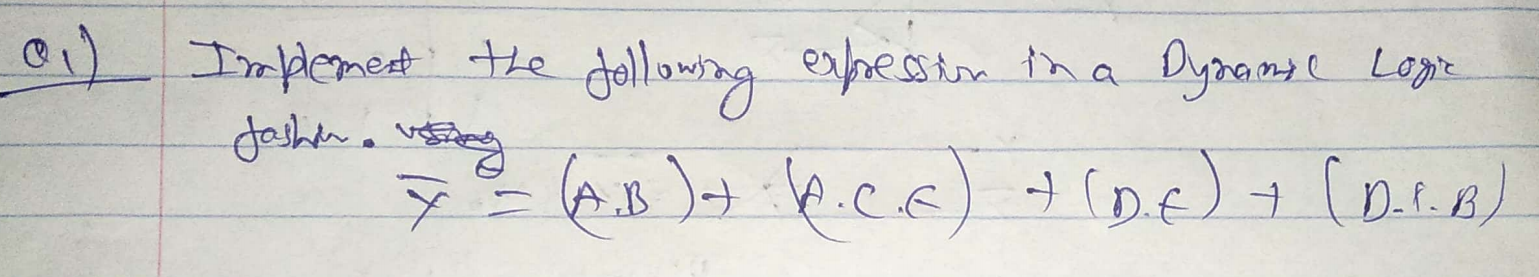 Q1) Implement the following expression in a Dynamic Logic
fashion.
Y̅ = (A.B) + (A.C.E) + (D.E) + (D.C.B)